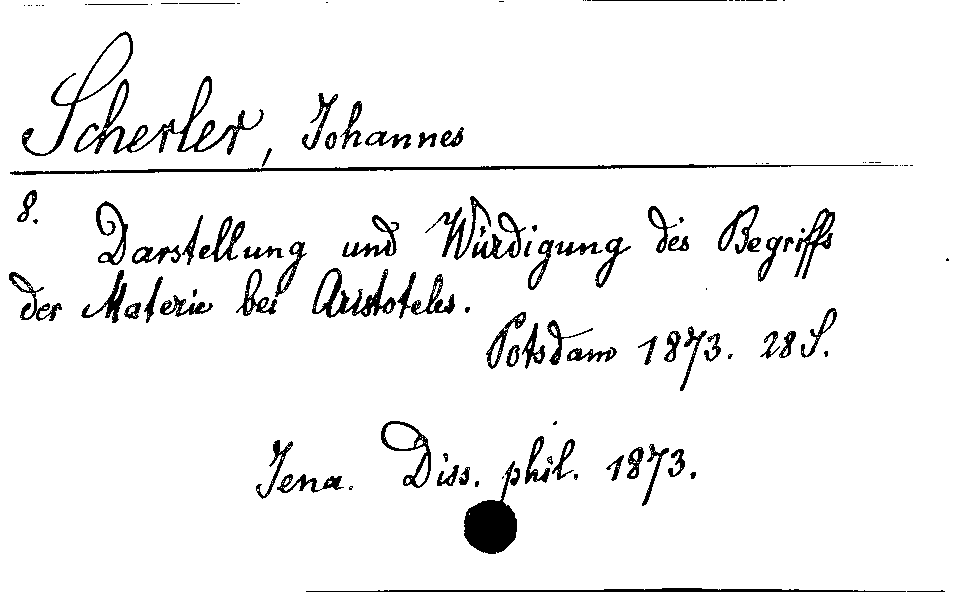 Scherler, Johannes
8.
Darstellung und Würdigung des Begriffs
der Materie bei Aristoteles.
Potsdam 1873. 28 S.
Jena. Diss. phil. 1873.